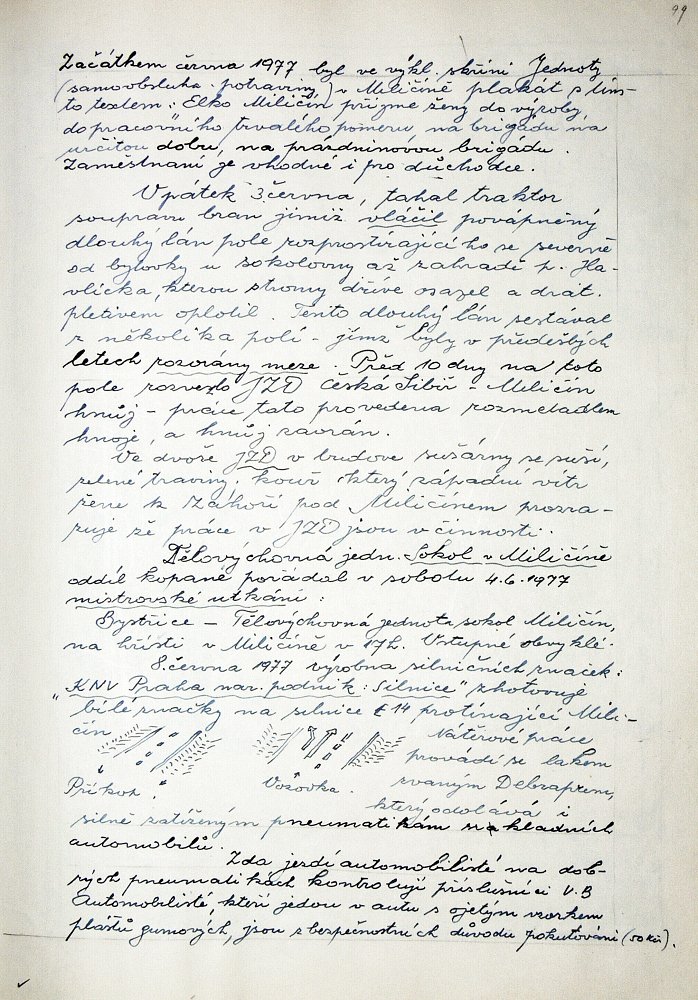 99
Začátkem června 1977 byl ve výkl. skříni Jednoty
(samoobsluha potraviny) v Miličíně plakát s tím-
to textem: Elko Miličín přijme ženy do výroby,
do pracovního trvalého poměru, na brigádu na
určitou dobu, na prázdninovou brigádu.
Zaměstnaní je vhodné i pro důchodce.
V pátek 3. června, tahal traktor
soupravu bran jimiž vláčil povápněný
dlouhý lán pole rozprostírajícího se severně
od bytovky u sokolovny až zahradě p. Ha-
vlíčka, kterou stromy dříve osázel a drát.
pletivem oplotil. Tento dlouhý lán sestával
z několika polí - jimž byly v předešlých
letech rozorány meze. Před 10 dny na toto
pole rozvezlo JZD Česká Sibiř - Miličín
hnůj - práce tato provedena rozmetadlem
hnoje, a hnůj zaorán.
Ve dvoře JZD v budově sušárny se suší,
zelené traviny, kouř který západní vítr
žene k Záhoří pod Miličínem prozra-
zuje že práce v JZD jsou v činnosti.
Tělovýchovná jedn. Sokol v Miličíně
oddíl kopané pořádal v sobotu 4.6.1977
mistrovské utkání:
Bystřice - Tělovýchovná jednota sokol Miličín,
na hřišti v Miličíně v 17h. Vstupné obvyklé.
8. června 1977 výrobna silničních značek:
"KNV Praha nar. podnik: Silnice" zhotovuje
bílé značky na silnice E 14 protínající Mili-
čín
Nátěrové práce
provádí se lakem
Příkop. Vozovka. zvaným Debrapren,
který odolává i
silně zatíženým pneumatikám nákladních
automobilů.
Zda jezdí automobilisté na dob-
rých pneumatikách kontrolují příslušníci V.B
Automobilisté, kteří jedou v autu s ojetým vzorkem
plášťů gumových, jsou z bezpečnostních důvodu pokutováni (50 Kčs).